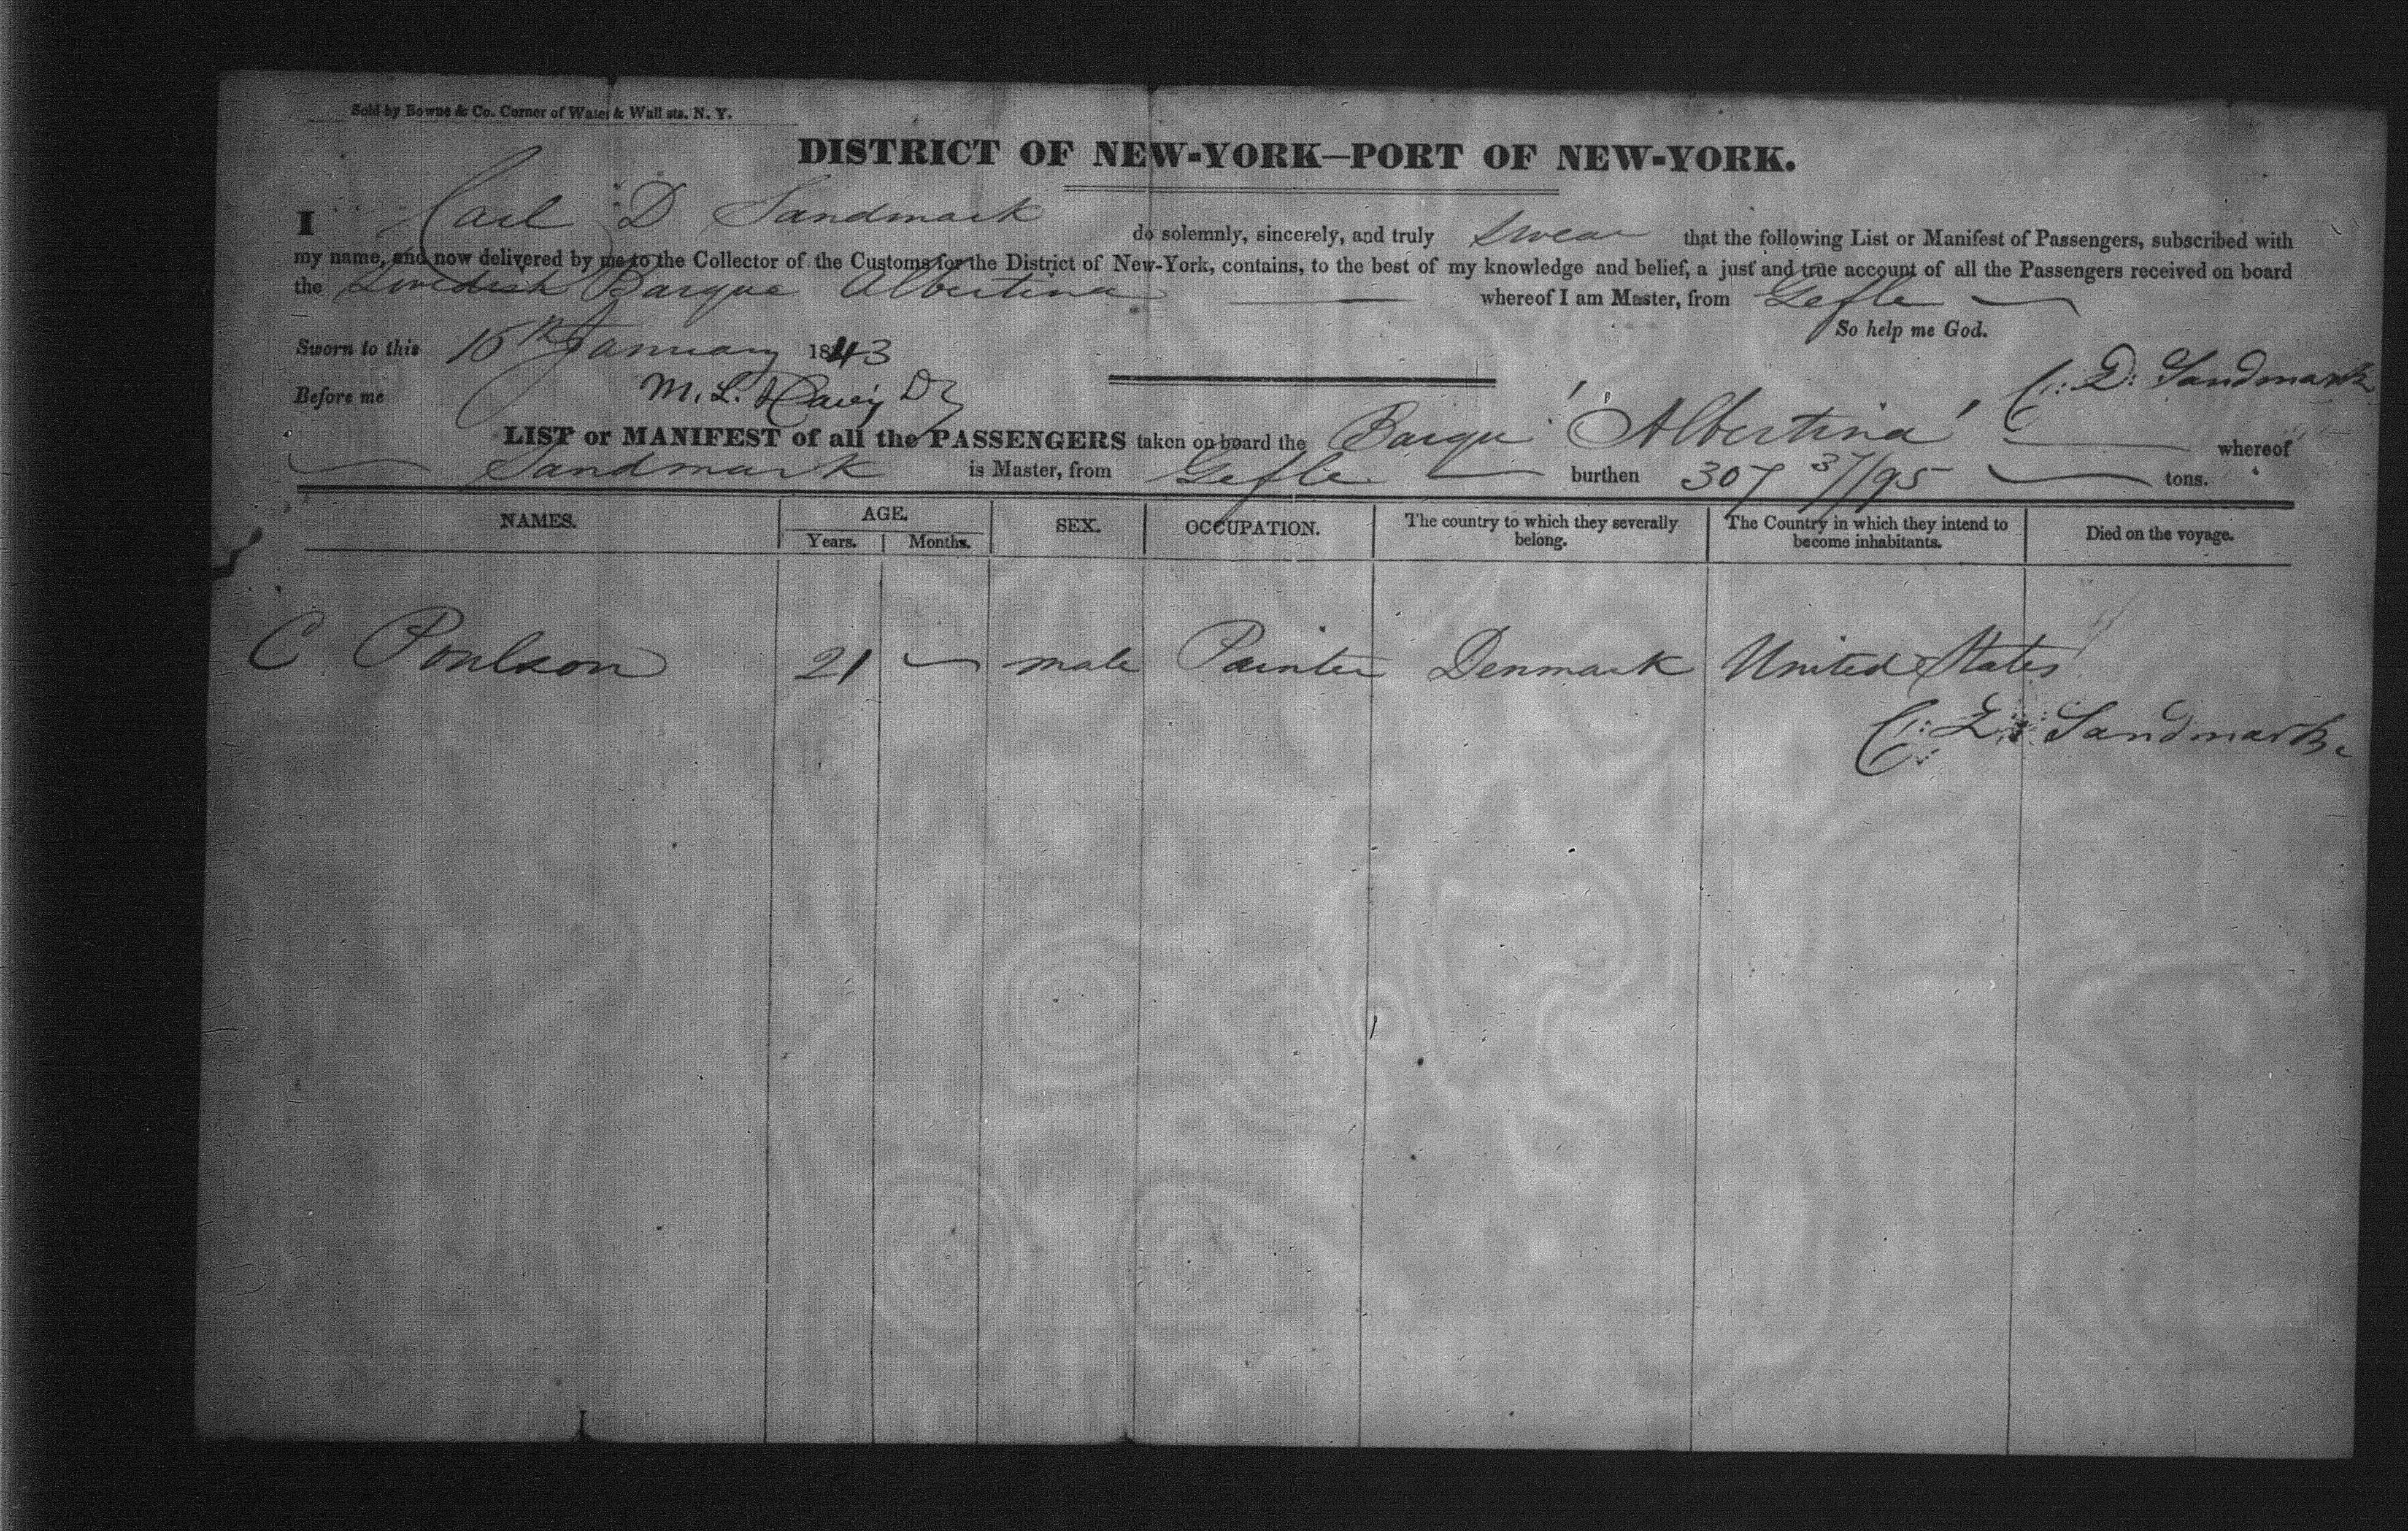 Sold by Bowne & Co. Corner of Water & Wall sts. N. Y.
DISTRICT OF NEW-YORK—PORT OF NEW-YORK.
I Carl D Sandmark do solemnly, sincerely, and truly swear that the following List or Manifest of Passengers, subscribed with
my name, and now delivered by me to the Collector of the Customs for the District of New-York, contains, to the best of my knowledge and belief, a just and true account of all the Passengers received on board
the Swedish Barque Albertina whereof I am Master, from Gefle
So help me God.
Sworn to this 16th January 1843
C: D: Sandmark
Before me M. L.
LIST or MANIFEST of all the PASSENGERS taken on board the Barque 'Albertina' whereof
Sandmark is Master, from Gefle burthen 307 37/95 tons.
NAMES. AGE. SEX. OCCUPATION. The country to which they severally belong. The Country in which they intend to become inhabitants. Died on the voyage.
Years. Months.
C Poulson 21 male Painter Denmark United States
C: D: Sandmark